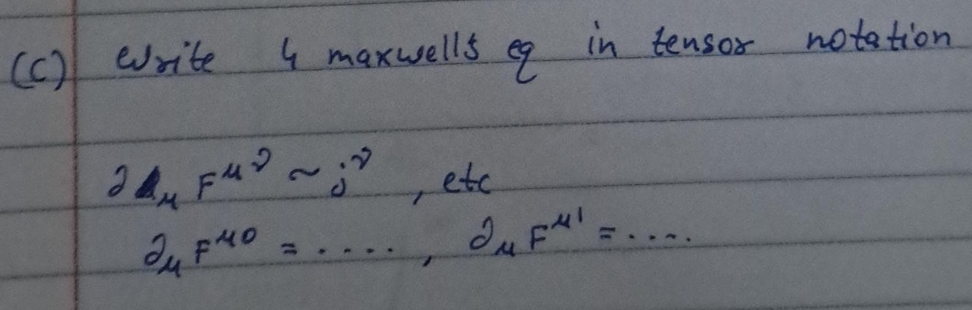 (c) Write 4 maxwells eq in tensor notation
∂_μ F^{μν} ~ j^ν , etc
∂_μ F^{μ0} = ····· , ∂_μ F^{μ1} = ·····